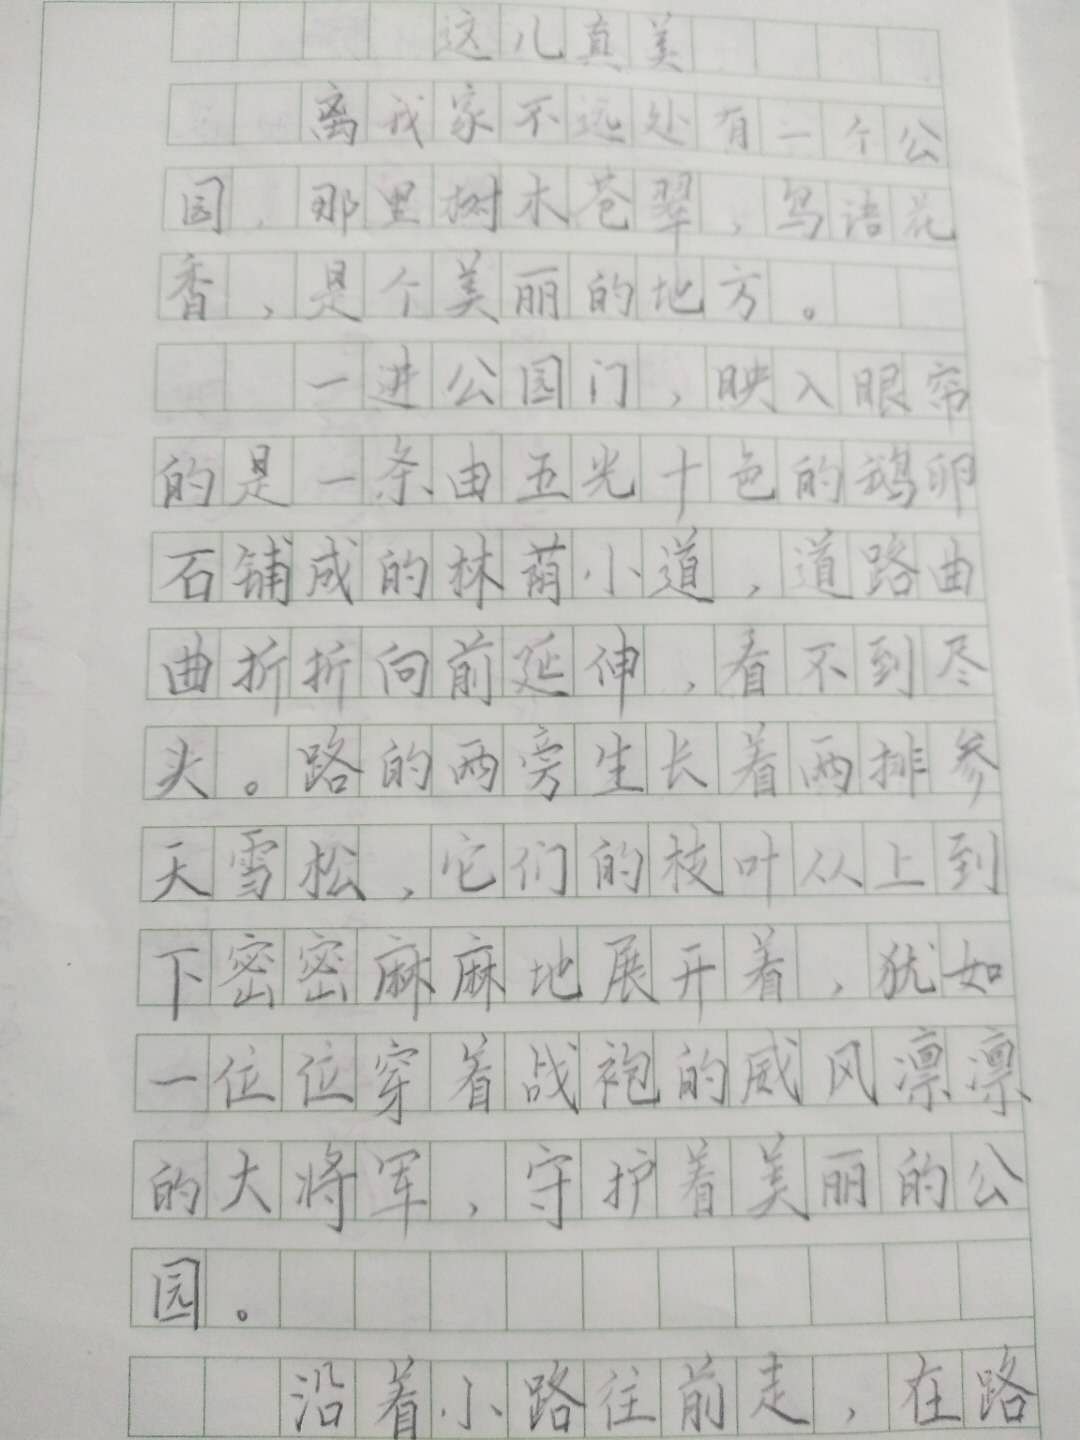 这儿真美
离我家不远处有一个公
园，那里树木苍翠，鸟语花
香，是个美丽的地方。
一进公园门，映入眼帘
的是一条由五光十色的鹅卵
石铺成的林荫小道，道路曲
曲折折向前延伸，看不到尽
头。路的两旁生长着两排参
天雪松，它们的枝叶从上到
下密密麻麻地展开着，犹如
一位位穿着战袍的威风凛凛
的大将军，守护着美丽的公
园。
沿着小路往前走，在路